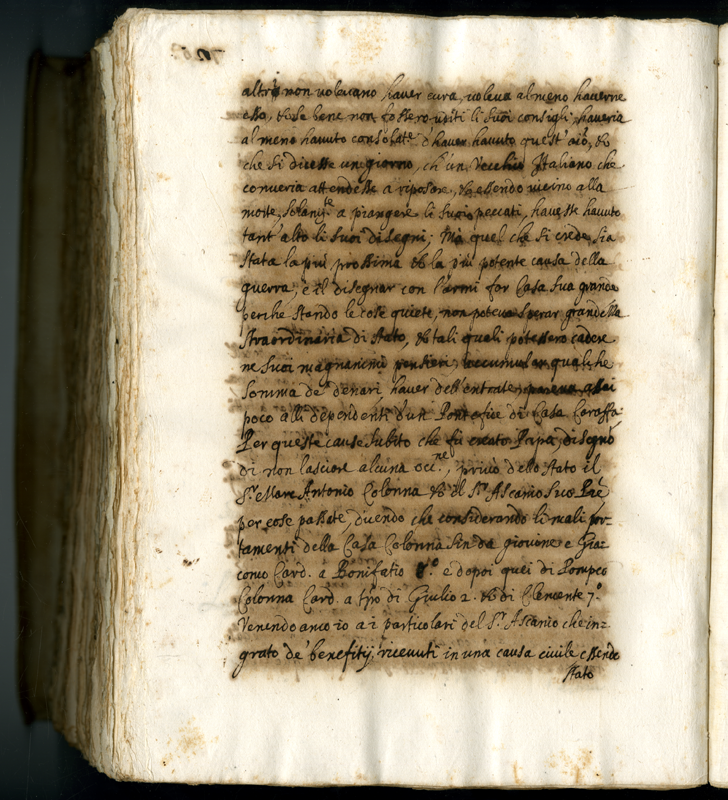 altri non volevano haver cura, voleva almeno haverne
esso, et se bene non fossero usiti li suoi consigli, haveria
almeno havuto consolat.e d'haver havuto quest'aiõ, et
che si dicesse un giorno, ch'un Vecchio Italiano che
converia attendesse a riposare, et essendo vicino alla
morte, solam.te a piangere li suoi peccati, havesse havuto
tant'alto li suoi disegni; Mà quel che si crede, sia
stata la più prossima et la più potente causa della
guerra, è il disegnar con l'armi far Casa sua grande
perche stando le cose quiete, non poteva sperar grandezza
straordinaria di stato, et tali quali potessero cadere
ne suoi magnanimi pensieri, accumular qualche
somma de denari, haver dell'entrate, pareva assai
poco alli dependenti d'un Pontefice di Casa Caraffa
Per queste cause subito che fù creato Papa, disegnò
di non lasciar alcuna occ.ne, privò dello stato il
S.r Marc Antonio Colonna et il S.r Ascanio suo Prẽ
per cose passate, dicendo che considerando li mali por-
tamenti della Casa Colonna sin da giovine e Gia:
como Card. a Bonifatio 8.o e dopoi quei di Pompeo
Colonna Card. a tpõ di Giulio 2. et di Clemente 7.o
Venendo anco io a i particolari del S.r Ascanio che in=
grato de benefitij ricevuti in una causa civile essendo
stato